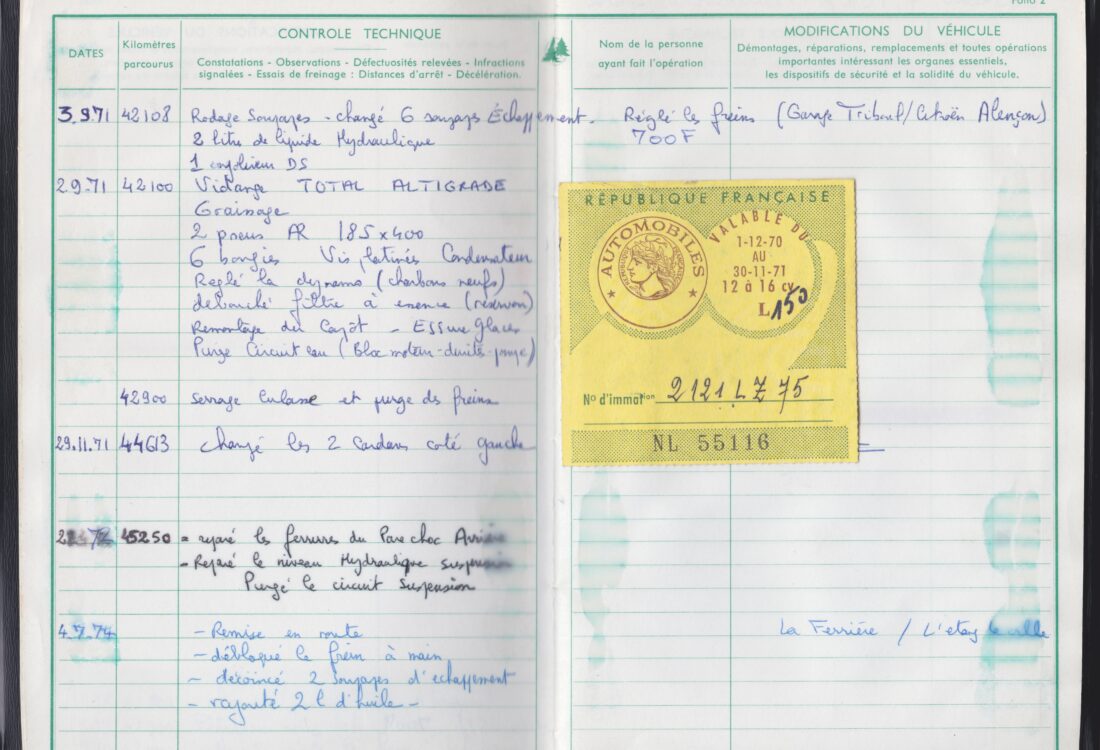 Folio 2
DATES
Kilomètres
parcourus
CONTROLE TECHNIQUE
Constatations - Observations - Défectuosités relevées - Infractions
signalées - Essais de freinage : Distances d'arrêt - Décélération.
Nom de la personne
ayant fait l'opération
MODIFICATIONS DU VÉHICULE
Démontages, réparations, remplacements et toutes opérations
importantes intéressant les organes essentiels,
les dispositifs de sécurité et la solidité du véhicule.
3.9.71 42108 Rodage Soupapes - changé 6 soupapes Échappement. Réglé les freins (Garage Tribout/Citroën Alençon)
2 litres de liquide Hydraulique 700F
1 DS
2.9.71 42100 Vidange TOTAL ALTIGRADE
Graissage
2 pneus AR 185x400
6 bougies Vis platinés Condensateur
Reglé la dynamo (charbons neufs)
débouché filtre à essence (réservoir)
Remontage du Capot - Essuie Glaces
Purge Circuit eau (Bloc moteur-durits-pompe)
42900 serrage Culasse et purge ds freins
29.11.71 44613 changé les 2 Cardans coté gauche
72 45250 = reparé les ferrures du Pare choc Arrière
- Reparé le niveau Hydraulique suspension
Purgé le circuit Suspension
4.7.74 - Remise en route La Ferrière / L'etang la ville
- débloqué le frein à main
- decoincé 2 soupapes d'echappement
- rajouté 2 l d'huile -
RÉPUBLIQUE FRANÇAISE
AUTOMOBILES
RÉPUBLIQUE FRANÇAISE
VALABLE DU
1-12-70
AU
30-11-71
12 à 16 CV
L 150
No d'immation 2121 LZ 75
NL 55116